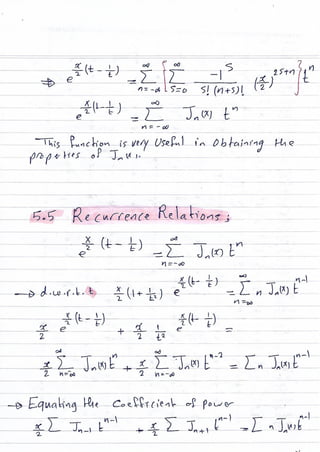 ⇒ e^{x/2 (t - 1/t)} = ∑_{n=-∞}^{∞} { ∑_{s=0}^{∞} -1^s / s! (n+s)! (x/2)^{2s+n} } t^n
e^{x/2 (t - 1/t)} = ∑_{n=-∞}^{∞} J_n(x) t^n
This function is very useful in obtaining the
properties of J_n(x).
5.5 Recurrence Relations;
e^{x/2 (t - 1/t)} = ∑_{n=-∞}^{∞} J_n(x) t^n
→ d.w.r.t. t x/2 (1 + 1/t²) e^{x/2 (t - 1/t)} = ∑_{n=-∞}^{∞} n J_n(x) t^{n-1}
x/2 e^{x/2 (t - 1/t)} + x/2 1/t² e^{x/2 (t - 1/t)} =
x/2 ∑_{n=-∞}^{∞} J_n(x) t^n + x/2 ∑_{n=-∞}^{∞} J_n(x) t^{n-2} = ∑ n J_n(x) t^{n-1}
→ Equating the Coefficient of power
x/2 ∑ J_{n-1} t^{n-1} + x/2 ∑ J_{n+1} t^{n-1} = ∑ n J_n(x) t^{n-1}